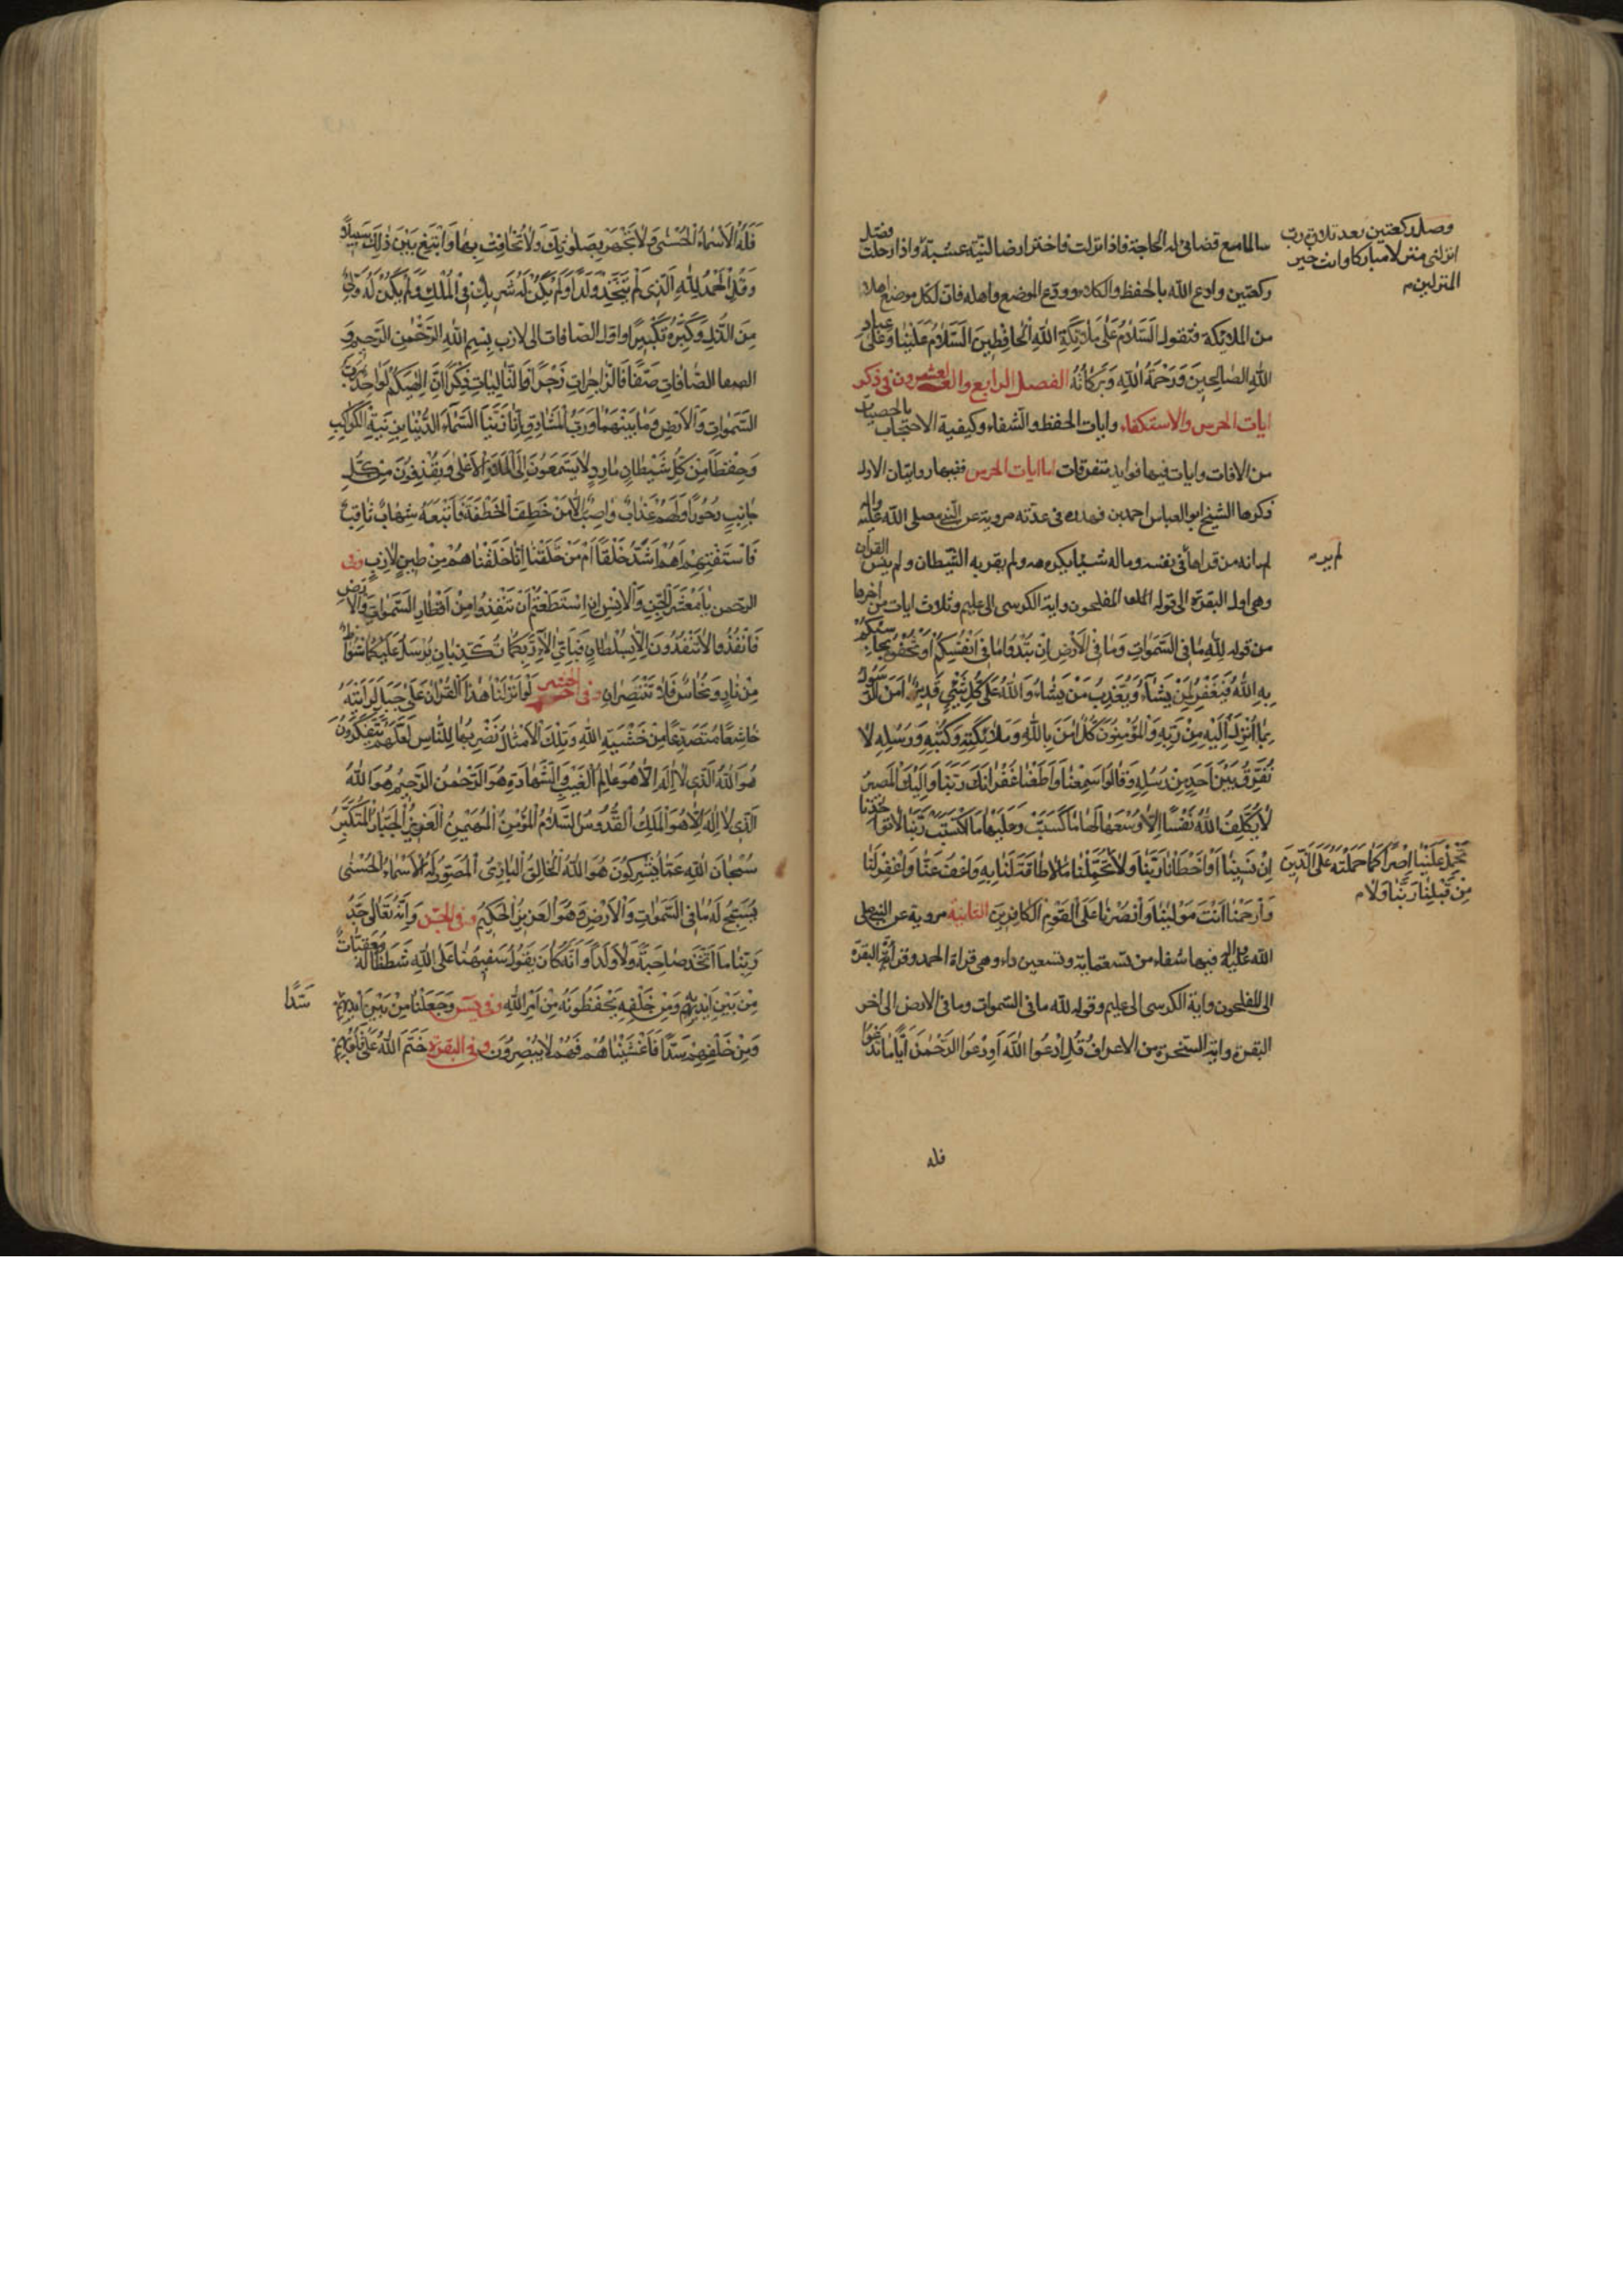 سالما مع قضائي له الحاجة فاذا نزلت فاختر ارضا لينة عشبة واذا رحلت فصل
ركعتين وادع الله بالحفظ والكلاء وودع الموضع واهله فان لكل موضع اهلا
من الملائكة فتقول اَلسَّلامُ عَلٰى مَلائِكَةِ اللهِ الْحافِظينَ اَلسَّلامُ عَلَيْنا وَعَلٰى عِبادِ
اللهِ الصالِحينَ وَرَحْمَةُ اللهِ وَبَرَكاتُهُ الفصل الرابع والعشرون في ذكر
ايات الحرس والاستكفاء وايات الحفظ والشفاء وكيفية الاحتجاب بالحصيات
من الافات وايات فيها فوايد متفرقات اما ايات الحرس ففيها روايتان الاولى
ذكرها الشيخ ابو العباس احمد بن فهد ره في عدته مروية عن النبي صلى الله عليه واله
انه من قراها في نفسه وماله شيئا يكرهه ولم يقربه الشيطان ولم ينس القران
وهي اول البقرة الى قوله المفلحون واية الكرسي الى عليم وثلاث ايات من اخرها
من قوله لِلّٰهِ ما فِي السَّمٰواتِ وَما فِي الْاَرْضِ اِنْ تُبْدُوا ما في اَنْفُسِكُمْ اَوْ تُخْفُوهُ يُحاسِبْكُمْ
بِهِ اللهُ فَيَغْفِرُ لِمَنْ يَشاءُ وَيُعَذِّبُ مَنْ يَشاءُ وَاللهُ عَلٰى كُلِّ شَيْءٍ قَديرٌ اٰمَنَ الرَّسُولُ
بِما اُنْزِلَ اِلَيْهِ مِنْ رَبِّهِ وَالْمُؤْمِنُونَ كُلٌّ اٰمَنَ بِاللهِ وَمَلائِكَتِهِ وَكُتُبِهِ وَرُسُلِهِ لا
نُفَرِّقُ بَيْنَ اَحَدٍ مِنْ رُسُلِهِ وَقالُوا سَمِعْنا وَاَطَعْنا غُفْرانَكَ رَبَّنا وَاِلَيْكَ الْمَصيرُ
لا يُكَلِّفُ اللهُ نَفْسًا اِلَّا وُسْعَها لَها ما كَسَبَتْ وَعَلَيْها مَا اكْتَسَبَتْ رَبَّنا لا تُؤاخِذْنا
اِنْ نَسينا اَوْ اَخْطَأْنا رَبَّنا وَلا تُحَمِّلْنا ما لا طاقَةَ لَنا بِهِ وَاعْفُ عَنَّا وَاغْفِرْ لَنا
وَارْحَمْنا اَنْتَ مَوْلينا وَانْصُرْنا عَلَى الْقَوْمِ الْكافِرينَ الثانية مروية عن النبي صلى
الله عليه واله فيها شفاء من تسعماية وتسعين داء وهي قراة الحمد وقراة البقرة
الى المفلحون واية الكرسي الى عليم وقوله لله ما في السموات وما في الارض الى اخر
البقرة واية السخرة من الاعراف قُلِ ادْعُوا اللهَ اَوِ ادْعُوا الرَّحْمٰنَ اَيًّا ما تَدْعُوا
فله
وصل ركعتين بعد تلاوة رب
انزلني منزلا مباركا وانت خير
المنزلين
لم ير
تَحْمِلْ عَلَيْنا اِصْرًا كَما حَمَلْتَهُ عَلَى الَّذينَ
مِنْ قَبْلِنا رَبَّنا وَلا
فَلَهُ الْاَسْماءُ الْحُسْنٰى وَلا تَجْهَرْ بِصَلٰوتِكَ وَلا تُخافِتْ بِها وَابْتَغِ بَيْنَ ذٰلِكَ سَبيلًا
وَقُلِ الْحَمْدُ لِلّٰهِ الَّذي لَمْ يَتَّخِذْ وَلَدًا وَلَمْ يَكُنْ لَهُ شَريكٌ فِي الْمُلْكِ وَلَمْ يَكُنْ لَهُ وَلِيٌّ
مِنَ الذُّلِّ وَكَبِّرْهُ تَكْبيرًا واول الصافات الى لازب بِسْمِ اللهِ الرَّحْمٰنِ الرَّحيمِ وَ
الصّافّاتِ صَفًّا فَالزّاجِراتِ زَجْرًا فَالتّالِياتِ ذِكْرًا اِنَّ اِلٰهَكُمْ لَواحِدٌ رَبُّ
السَّمٰواتِ وَالْاَرْضِ وَما بَيْنَهُما وَرَبُّ الْمَشارِقِ اِنّا زَيَّنَّا السَّماءَ الدُّنْيا بِزينَةٍ الْكَواكِبِ
وَحِفْظًا مِنْ كُلِّ شَيْطانٍ مارِدٍ لا يَسَّمَّعُونَ اِلَى الْمَلَاِ الْاَعْلٰى وَيُقْذَفُونَ مِنْ كُلِّ
جانِبٍ دُحُورًا وَلَهُمْ عَذابٌ واصِبٌ اِلّا مَنْ خَطِفَ الْخَطْفَةَ فَاَتْبَعَهُ شِهابٌ ثاقِبٌ
فَاسْتَفْتِهِمْ اَهُمْ اَشَدُّ خَلْقًا اَمْ مَنْ خَلَقْنا اِنّا خَلَقْناهُمْ مِنْ طينٍ لازِبٍ وفي
الرحمن يا مَعْشَرَ الْجِنِّ وَالْاِنْسِ اِنِ اسْتَطَعْتُمْ اَنْ تَنْفُذُوا مِنْ اَقْطارِ السَّمٰواتِ وَالْاَرْضِ
فَانْفُذُوا لا تَنْفُذُونَ اِلّا بِسُلْطانٍ فَبِاَيِّ اٰلاءِ رَبِّكُما تُكَذِّبانِ يُرْسَلُ عَلَيْكُما شُواظٌ
مِنْ نارٍ وَنُحاسٌ فَلا تَنْتَصِرانِ وفي الحشر لَوْ اَنْزَلْنا هٰذَا الْقُرْاٰنَ عَلٰى جَبَلٍ لَرَاَيْتَهُ
خاشِعًا مُتَصَدِّعًا مِنْ خَشْيَةِ اللهِ وَتِلْكَ الْاَمْثالُ نَضْرِبُها لِلنّاسِ لَعَلَّهُمْ يَتَفَكَّرُونَ
هُوَ اللهُ الَّذي لا اِلٰهَ اِلّا هُوَ عالِمُ الْغَيْبِ وَالشَّهادَةِ هُوَ الرَّحْمٰنُ الرَّحيمُ هُوَ اللهُ
الَّذي لا اِلٰهَ اِلّا هُوَ الْمَلِكُ الْقُدُّوسُ السَّلامُ الْمُؤْمِنُ الْمُهَيْمِنُ الْعَزيزُ الْجَبّارُ الْمُتَكَبِّرُ
سُبْحانَ اللهِ عَمّا يُشْرِكُونَ هُوَ اللهُ الْخالِقُ الْبارِئُ الْمُصَوِّرُ لَهُ الْاَسْماءُ الْحُسْنٰى
يُسَبِّحُ لَهُ ما فِي السَّمٰواتِ وَالْاَرْضِ وَهُوَ الْعَزيزُ الْحَكيمُ وفي الجن وَاَنَّهُ تَعالٰى جَدُّ
رَبِّنا مَا اتَّخَذَ صاحِبَةً وَلا وَلَدًا وَاَنَّهُ كانَ يَقُولُ سَفيهُنا عَلَى اللهِ شَطَطًا لَهُ مُعَقِّباتٌ
مِنْ بَيْنِ يَدَيْهِ وَمِنْ خَلْفِهِ يَحْفَظُونَهُ مِنْ اَمْرِ اللهِ وفي يس وَجَعَلْنا مِنْ بَيْنِ اَيْديهِمْ
سَدًّا
وَمِنْ خَلْفِهِمْ سَدًّا فَاَغْشَيْناهُمْ فَهُمْ لا يُبْصِرُونَ وفي البقرة خَتَمَ اللهُ عَلٰى قُلُوبِهِمْ